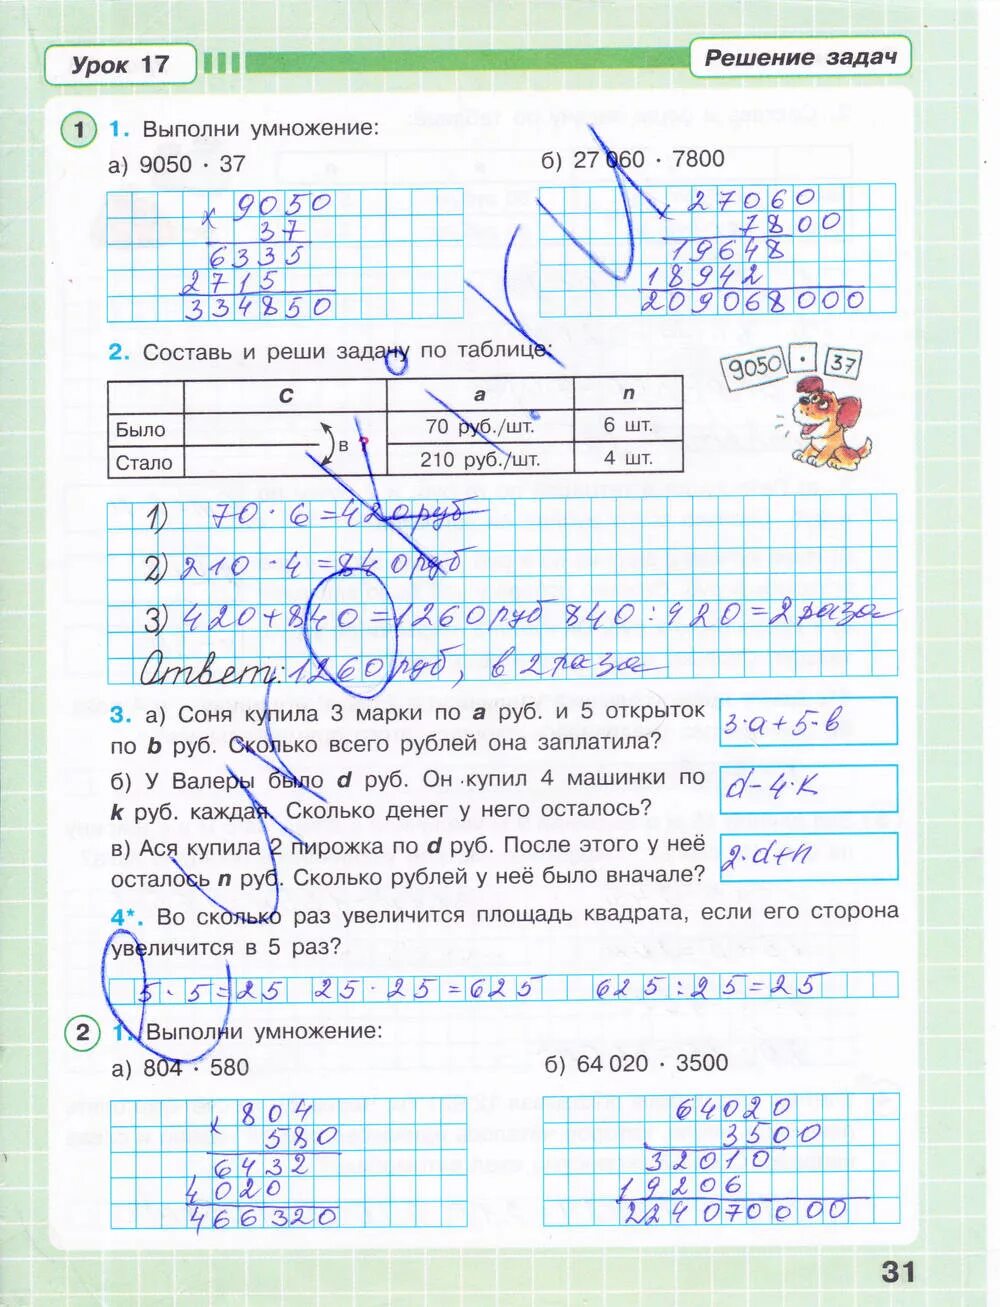 Урок 17
Решение задач
1 1. Выполни умножение:
а) 9050 · 37
б) 27 060 · 7800
× 9050
37
6335
2715
334850
× 27060
7800
19648
18942
209068000
2. Составь и реши задачу по таблице:
9050 · 37
С а n
Было 70 руб./шт. 6 шт.
в ?
Стало 210 руб./шт. 4 шт.
1) 70 · 6 = 420 руб
2) 210 · 4 = 840 руб
3) 420 + 840 = 1260 руб 840 : 420 = 2 раза
Ответ: 1260 руб, в 2 раза
3. а) Соня купила 3 марки по a руб. и 5 открыток
по b руб. Сколько всего рублей она заплатила?
3·a+5·в
б) У Валеры было d руб. Он купил 4 машинки по
k руб. каждая. Сколько денег у него осталось?
d-4·k
в) Ася купила 2 пирожка по d руб. После этого у неё
осталось n руб. Сколько рублей у неё было вначале?
2·d+n
4*. Во сколько раз увеличится площадь квадрата, если его сторона
увеличится в 5 раз?
5·5=25 25·25=625 625:25=25
2 1. Выполни умножение:
а) 804 · 580
б) 64 020 · 3500
× 804
580
6432
4020
466320
× 64020
3500
32010
19206
224070000
31